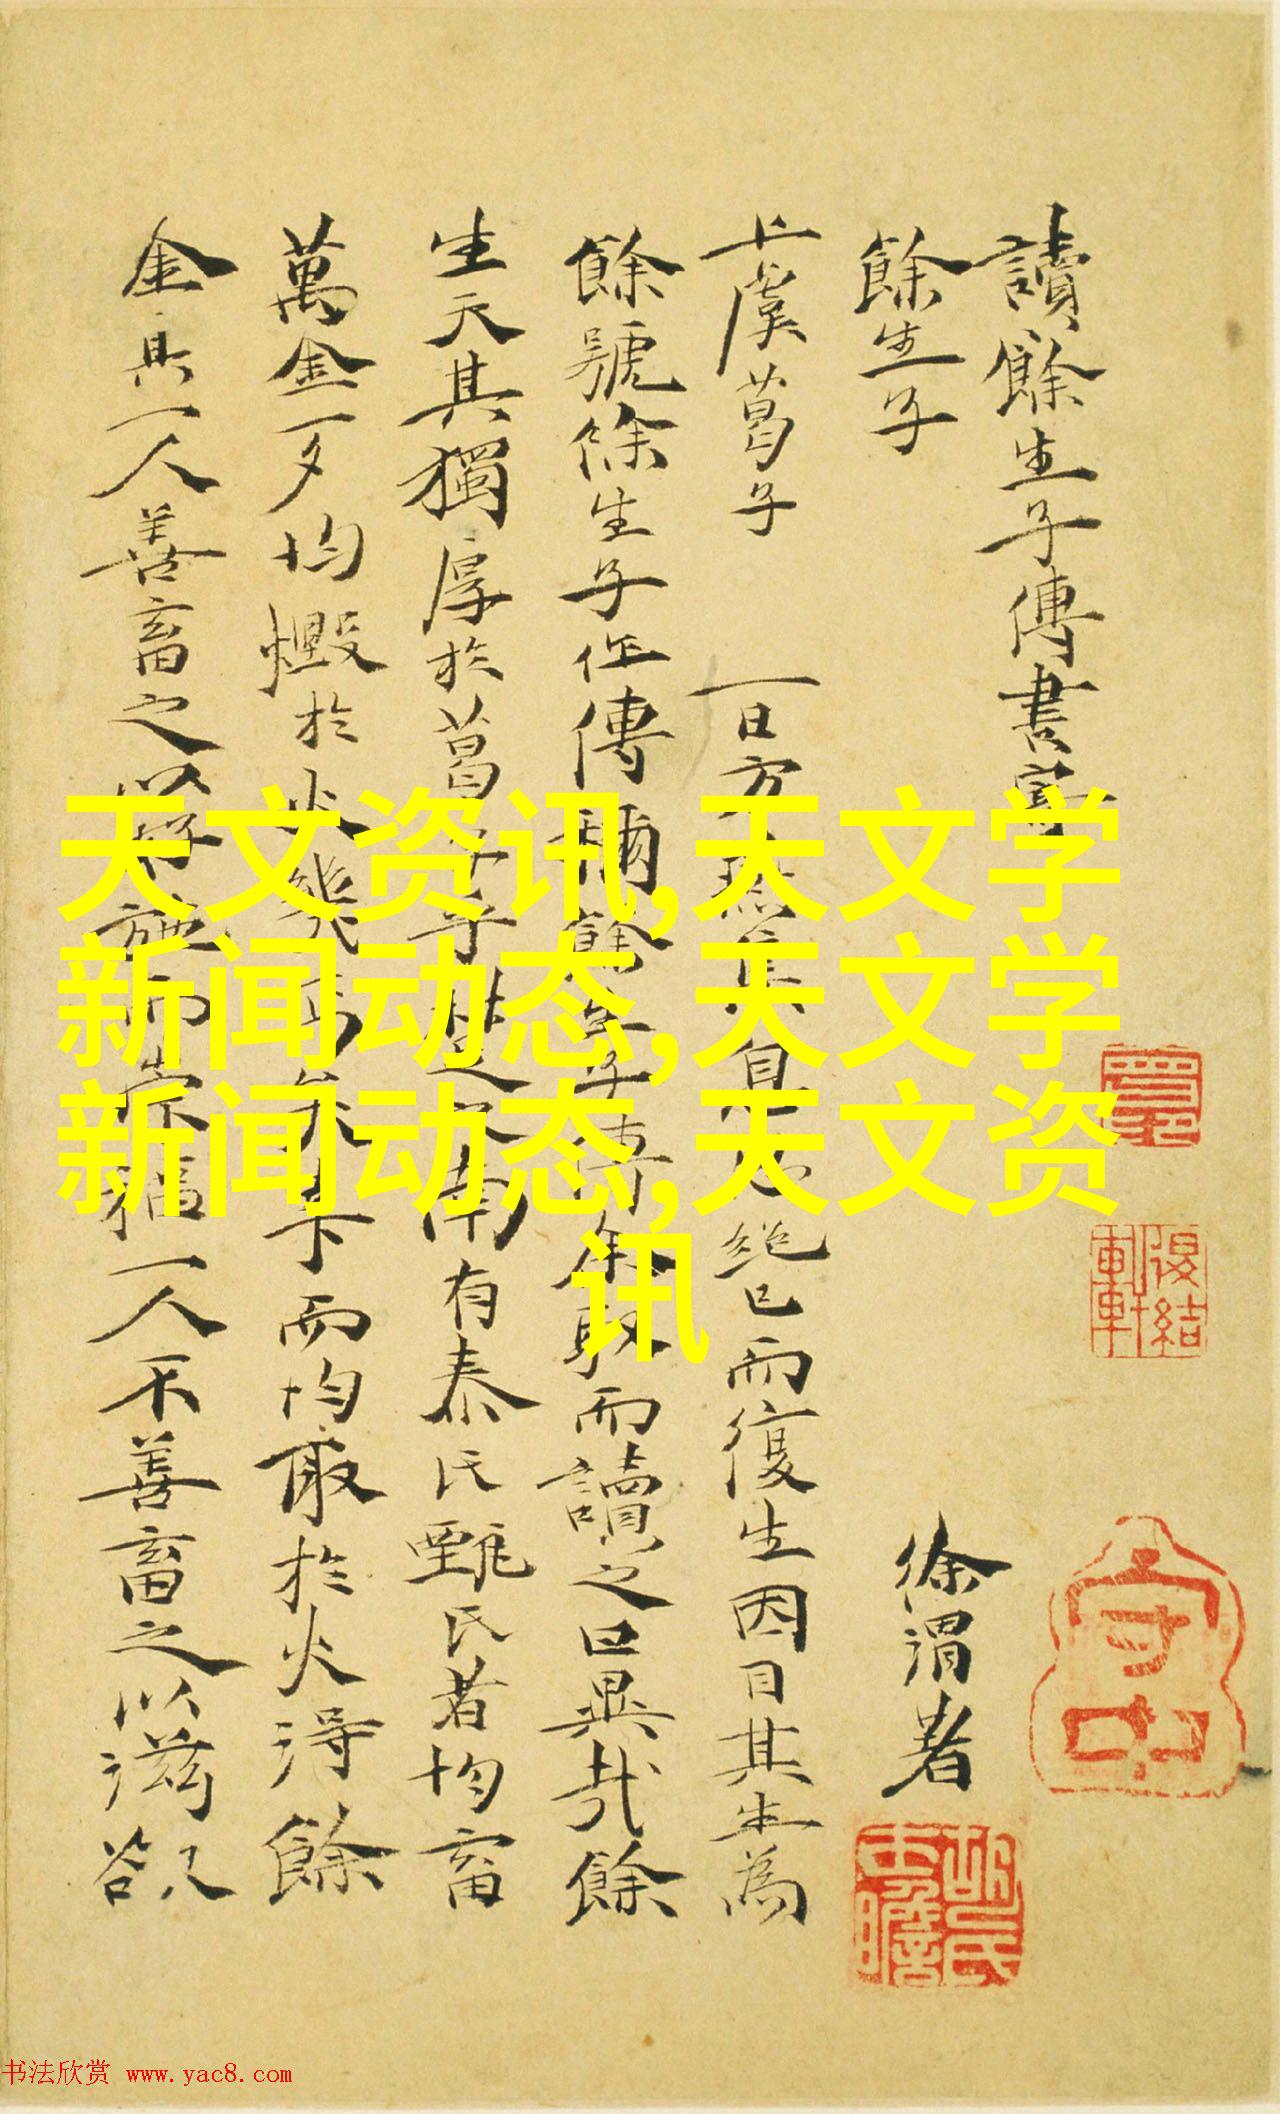 讀餘生子傳書寫
餘生子 徐渭著
上虞葛子 一日方自絕已而復生因目其生為
餘號餘生子作傳稱餘生子傳余取而讀之曰異哉餘
生天其獨厚於葛子乎楚之南有秦氏甄氏者均畜
萬金一夕均燬於火幾而均取於火得餘
金其一人善畜之以好施而崇福一人不善畜之以滋欲
守中
天文资讯,天文学
新闻动态,天文学
新闻动态,天文资
讯
书法欣赏 www.yac8.com